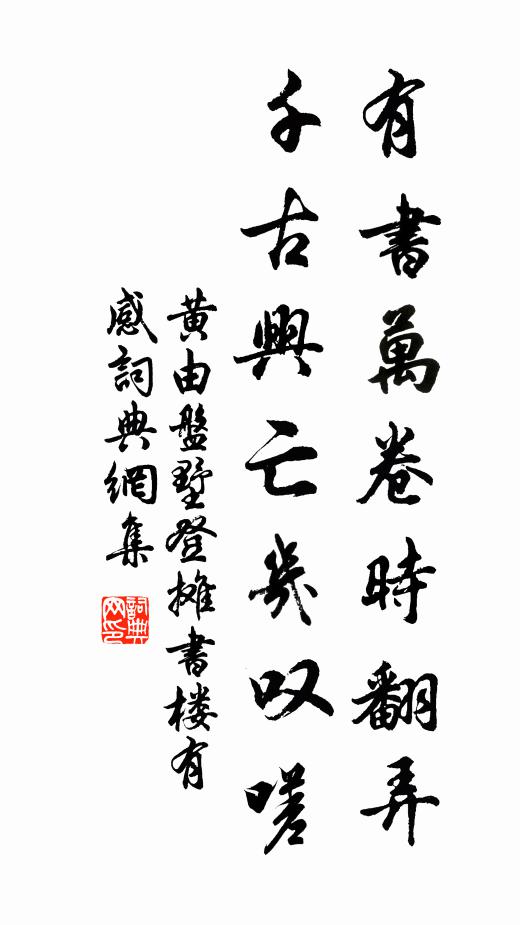 有書萬卷時翻弄
千古興亡幾叹嗟
黄由盤墅登摊書楼有
感詞典網集
詞典
网印